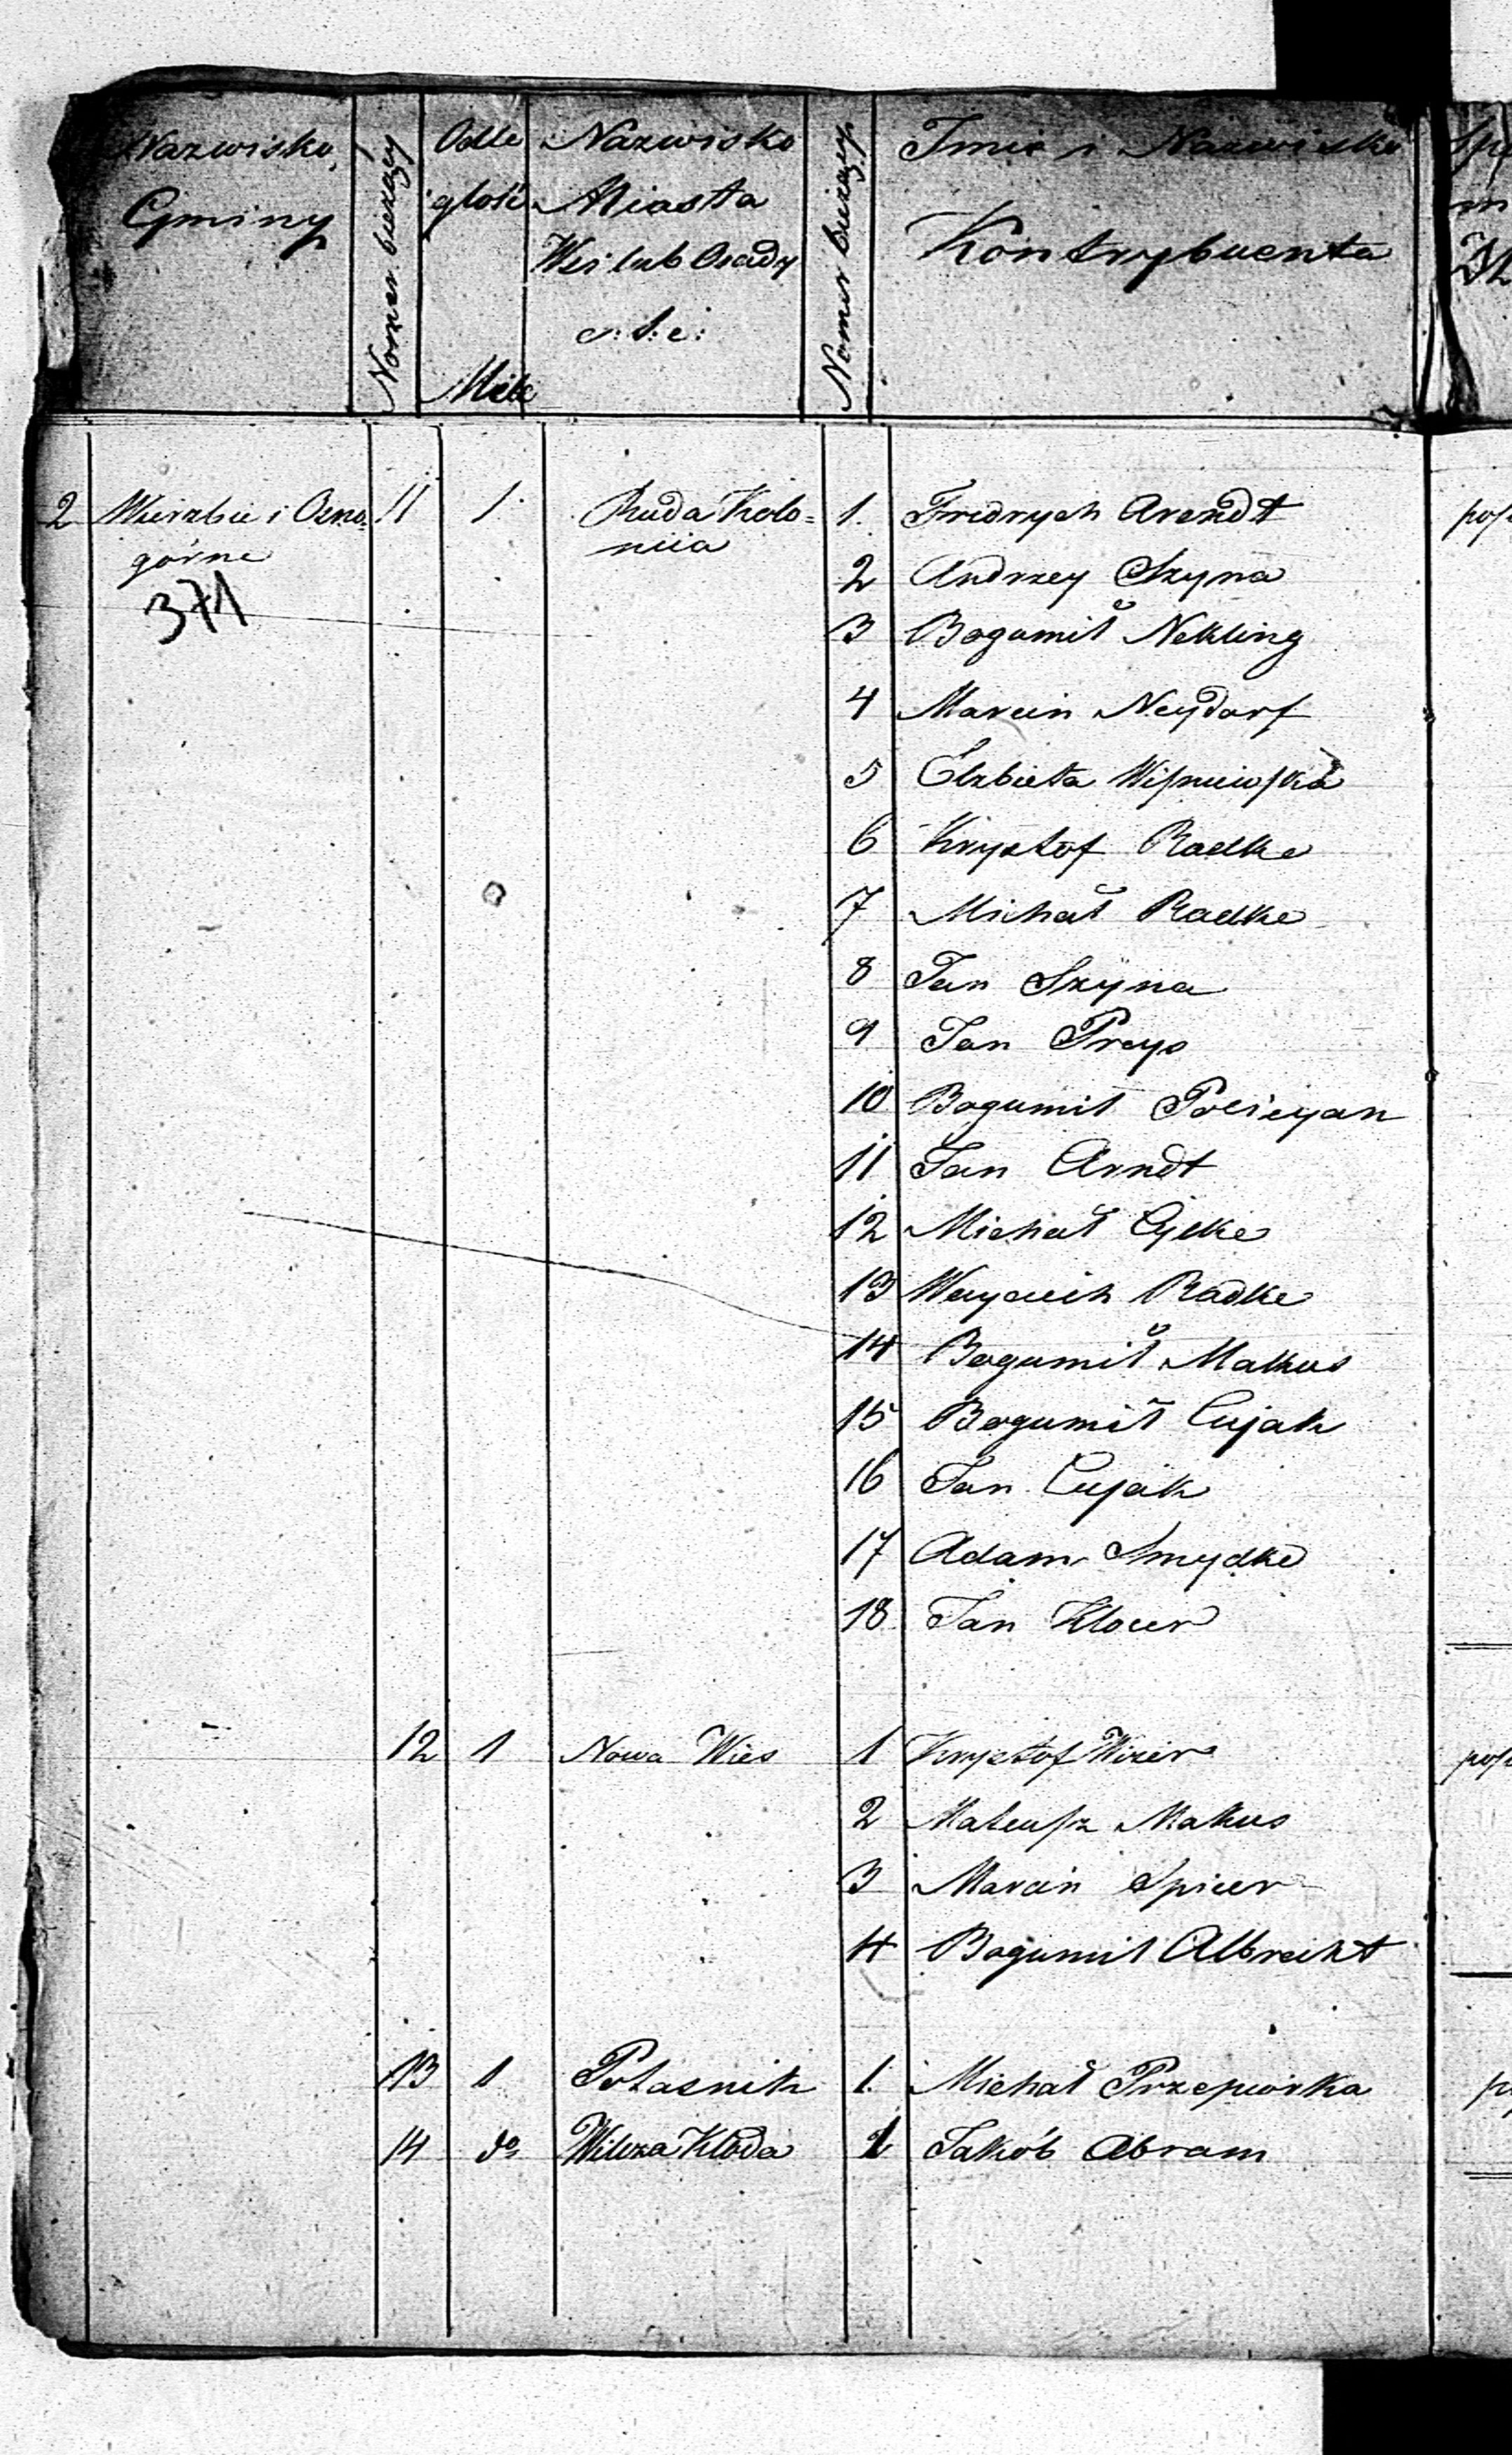 Nazwisko Gminy
Nomer bieżący
Odle głość Mile
Nazwisko Miasta Wsi lub Osady
Nomer bieżący
Imie i Nazwisko Kontrybuenta
2 Wierzbie i Ozno= 11 1 Ruda Kolo= 1. Fridrych Arendt
górne niia
371
2 Andrzey Szyna
3 Bogumił Nekling
4 Marcin Neydorf
5 Elzbieta Wisniewska
6 Krysztof Radke
7 Michał Radke
8 Jan Szyna
9 Jan Preys
10 Bogumił
11 Jan Arndt
12 Michał
13 Woyciech Radke
14 Bogumił Malkus
15 Bogumił Cujak
16 Jan Cujak
17 Adam Smydke
18 Jan Klocer
12 1 Nowa Wies 1 Krysztof
2 Mateusz Makus
3 Marcin Spicer
4 Bogumił Albrecht
13 1 Potasnik 1. Michał Przepiorka
14 do Wilcza Kłoda 1 Jakób Abram